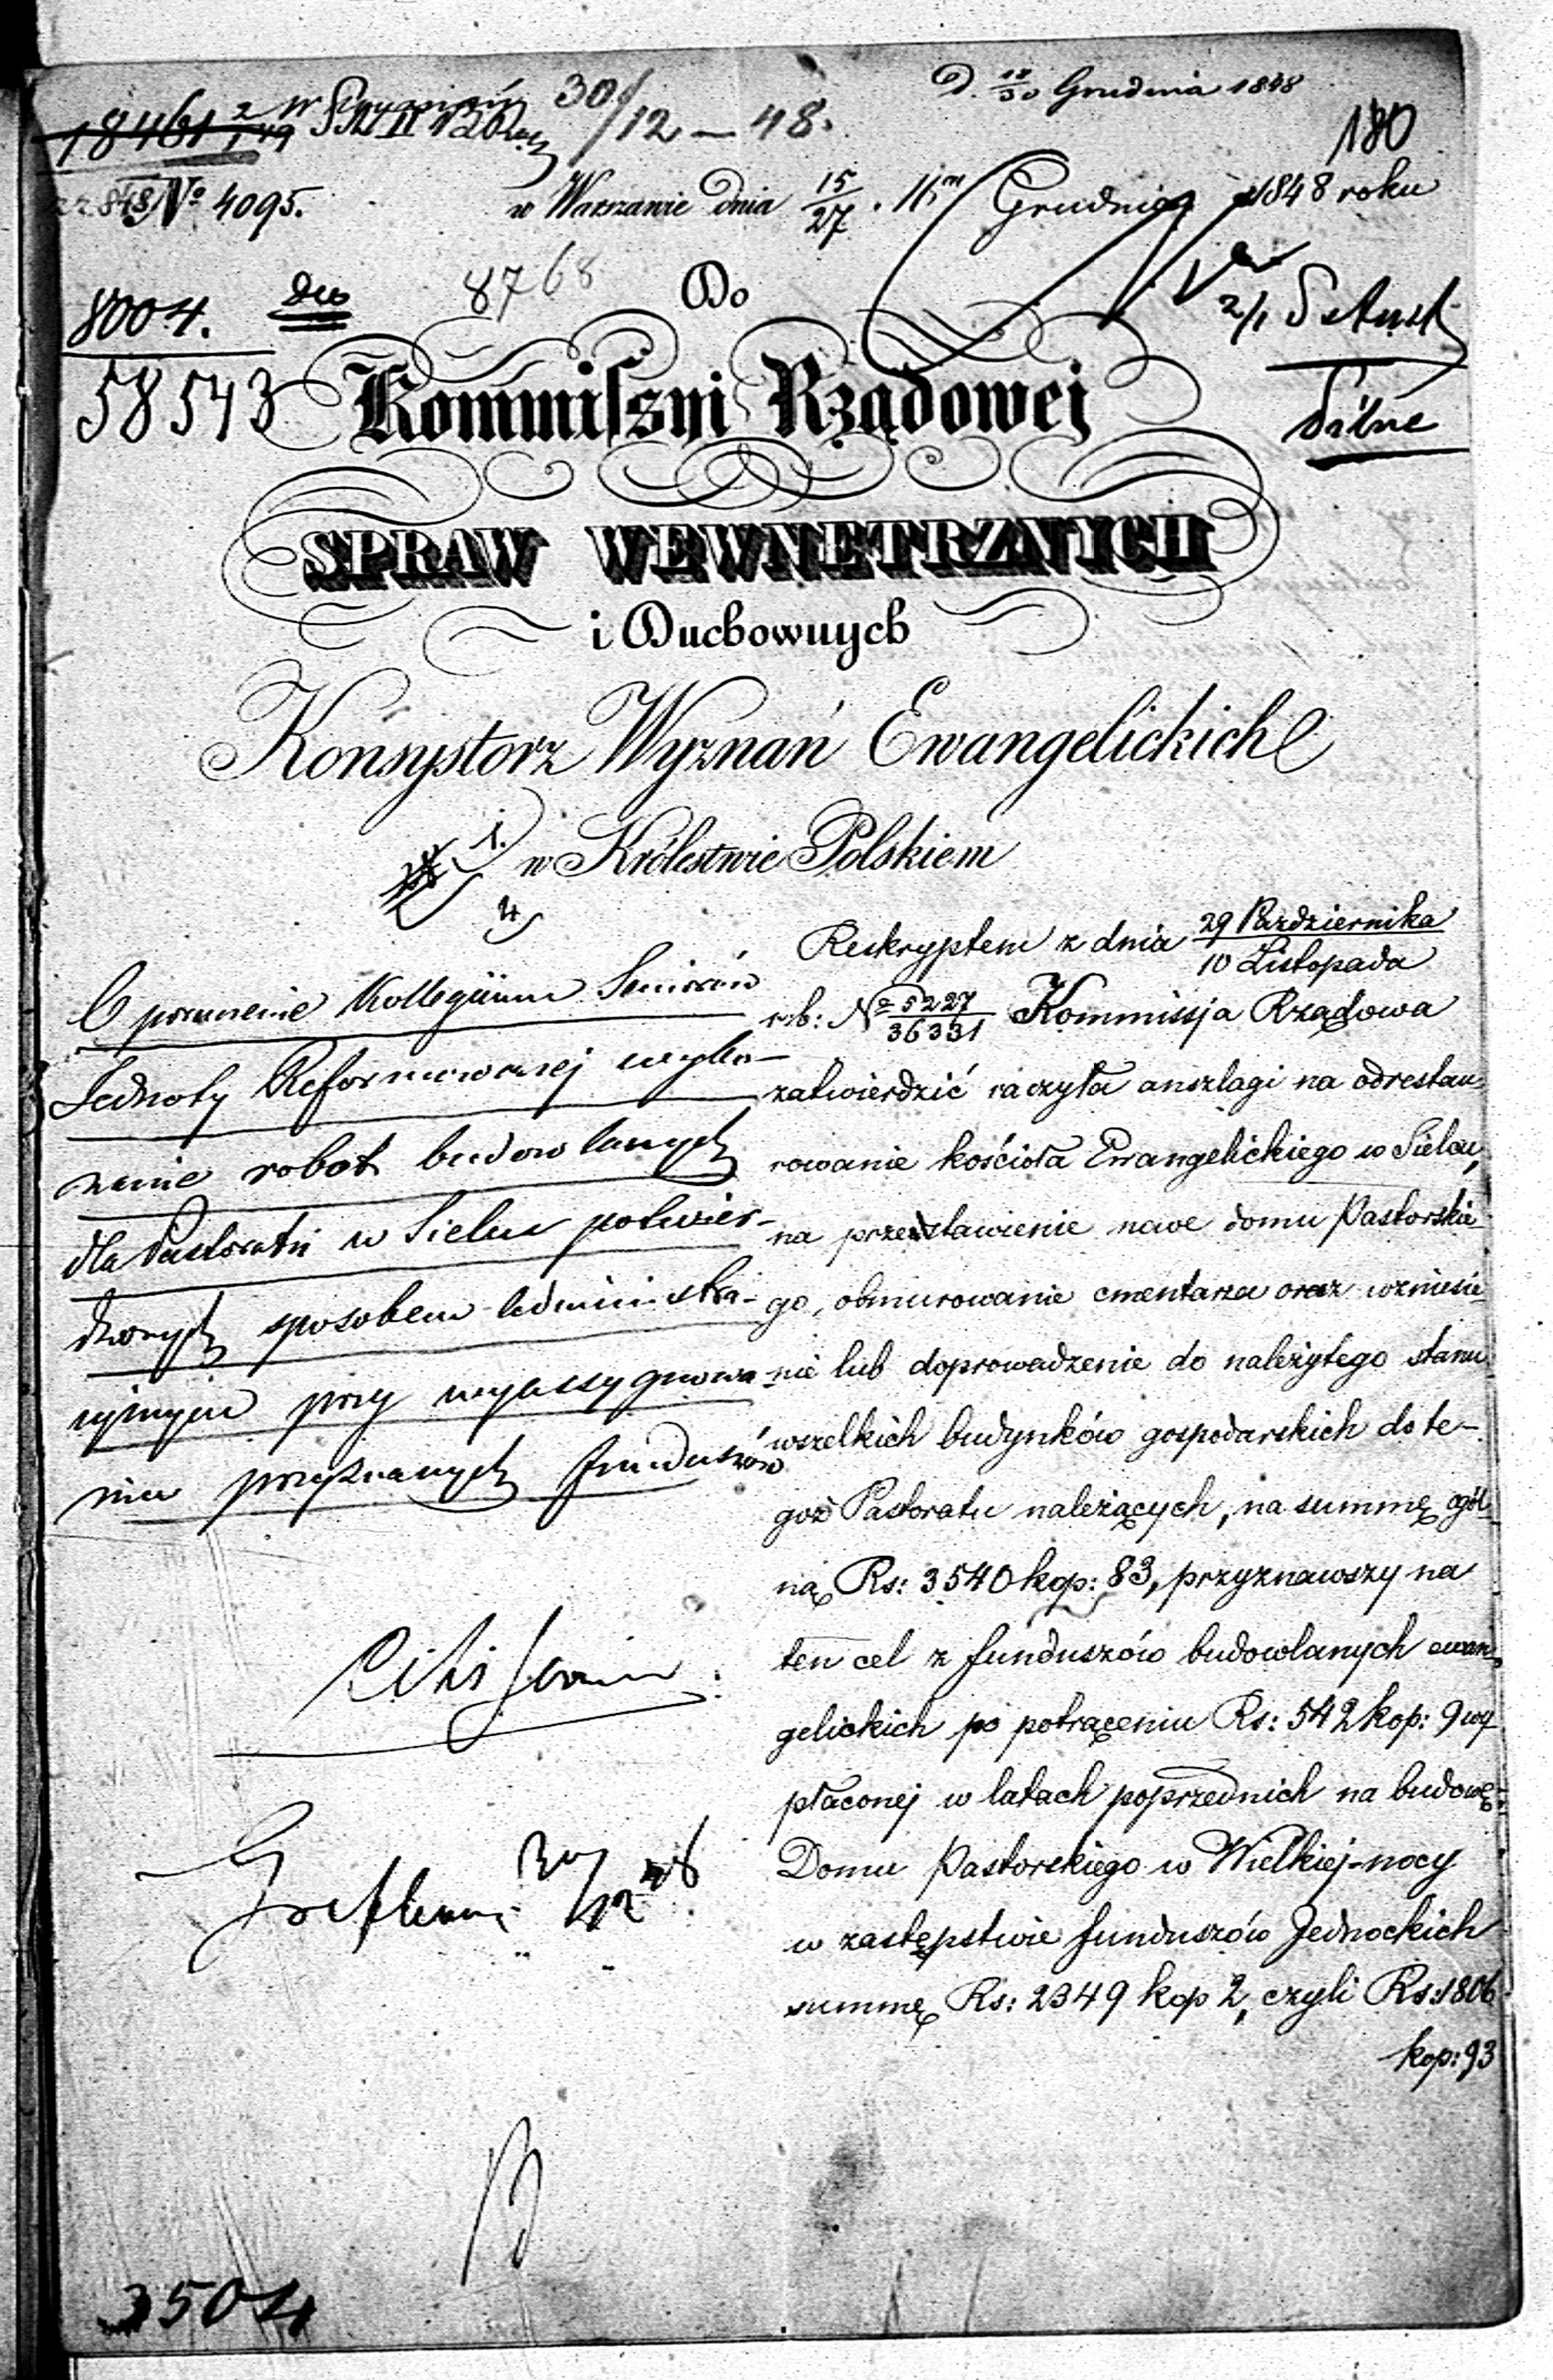 D. 18/30 Grudnia 1848
30/12 – 48.
180
18461
No 4095.
w Warszawie dnia 15/27 Grudnia 1848 roku
8768
Do
8004.
58543
2/1
Pilne
Kommissyi Rządowej
SPRAW WEWNETRZNYCH
i Duchownych
Konsystorz Wyznań Ewangelickich
w Królestwie Polskiem
1.
4
O poruczenie Kollegium Seniorów
Jednoty Reformowanej wyko-
nanie robot budowlanych
dla Pastoratu w Sielcu potwier-
dzonych sposobem administra-
cyjnym przy wyassygnowa-
niu przyznanych funduszów
Reskryptem z dnia 29 Października/10 Listopada
r. b: No 5227/36331 Kommissja Rządowa
zatwierdzić raczyła anszlagi na odrestau-
rowanie kościoła Ewangelickiego w Sielcu,
na przestawienie nowe domu Pastorskie-
go, obmurowanie cmentarza oraz wzniesie-
nie lub doprowadzenie do należytego stanu
wszelkich budynków gospodarskich do te-
goż Pastoratu należących, na summę ogól-
ną Rs: 3540 kop: 83, przyznawszy na
ten cel z funduszów budowlanych ewan-
gelickich po potrąceniu Rs: 542 kop: 9 wy
płaconej w latach poprzednich na budowę
Domu Pastorskiego w Wielkiej-nocy
w zastępstwie funduszów Jednockich
summę Rs: 2349 kop 2, czyli Rs: 1806
kop: 93
3504